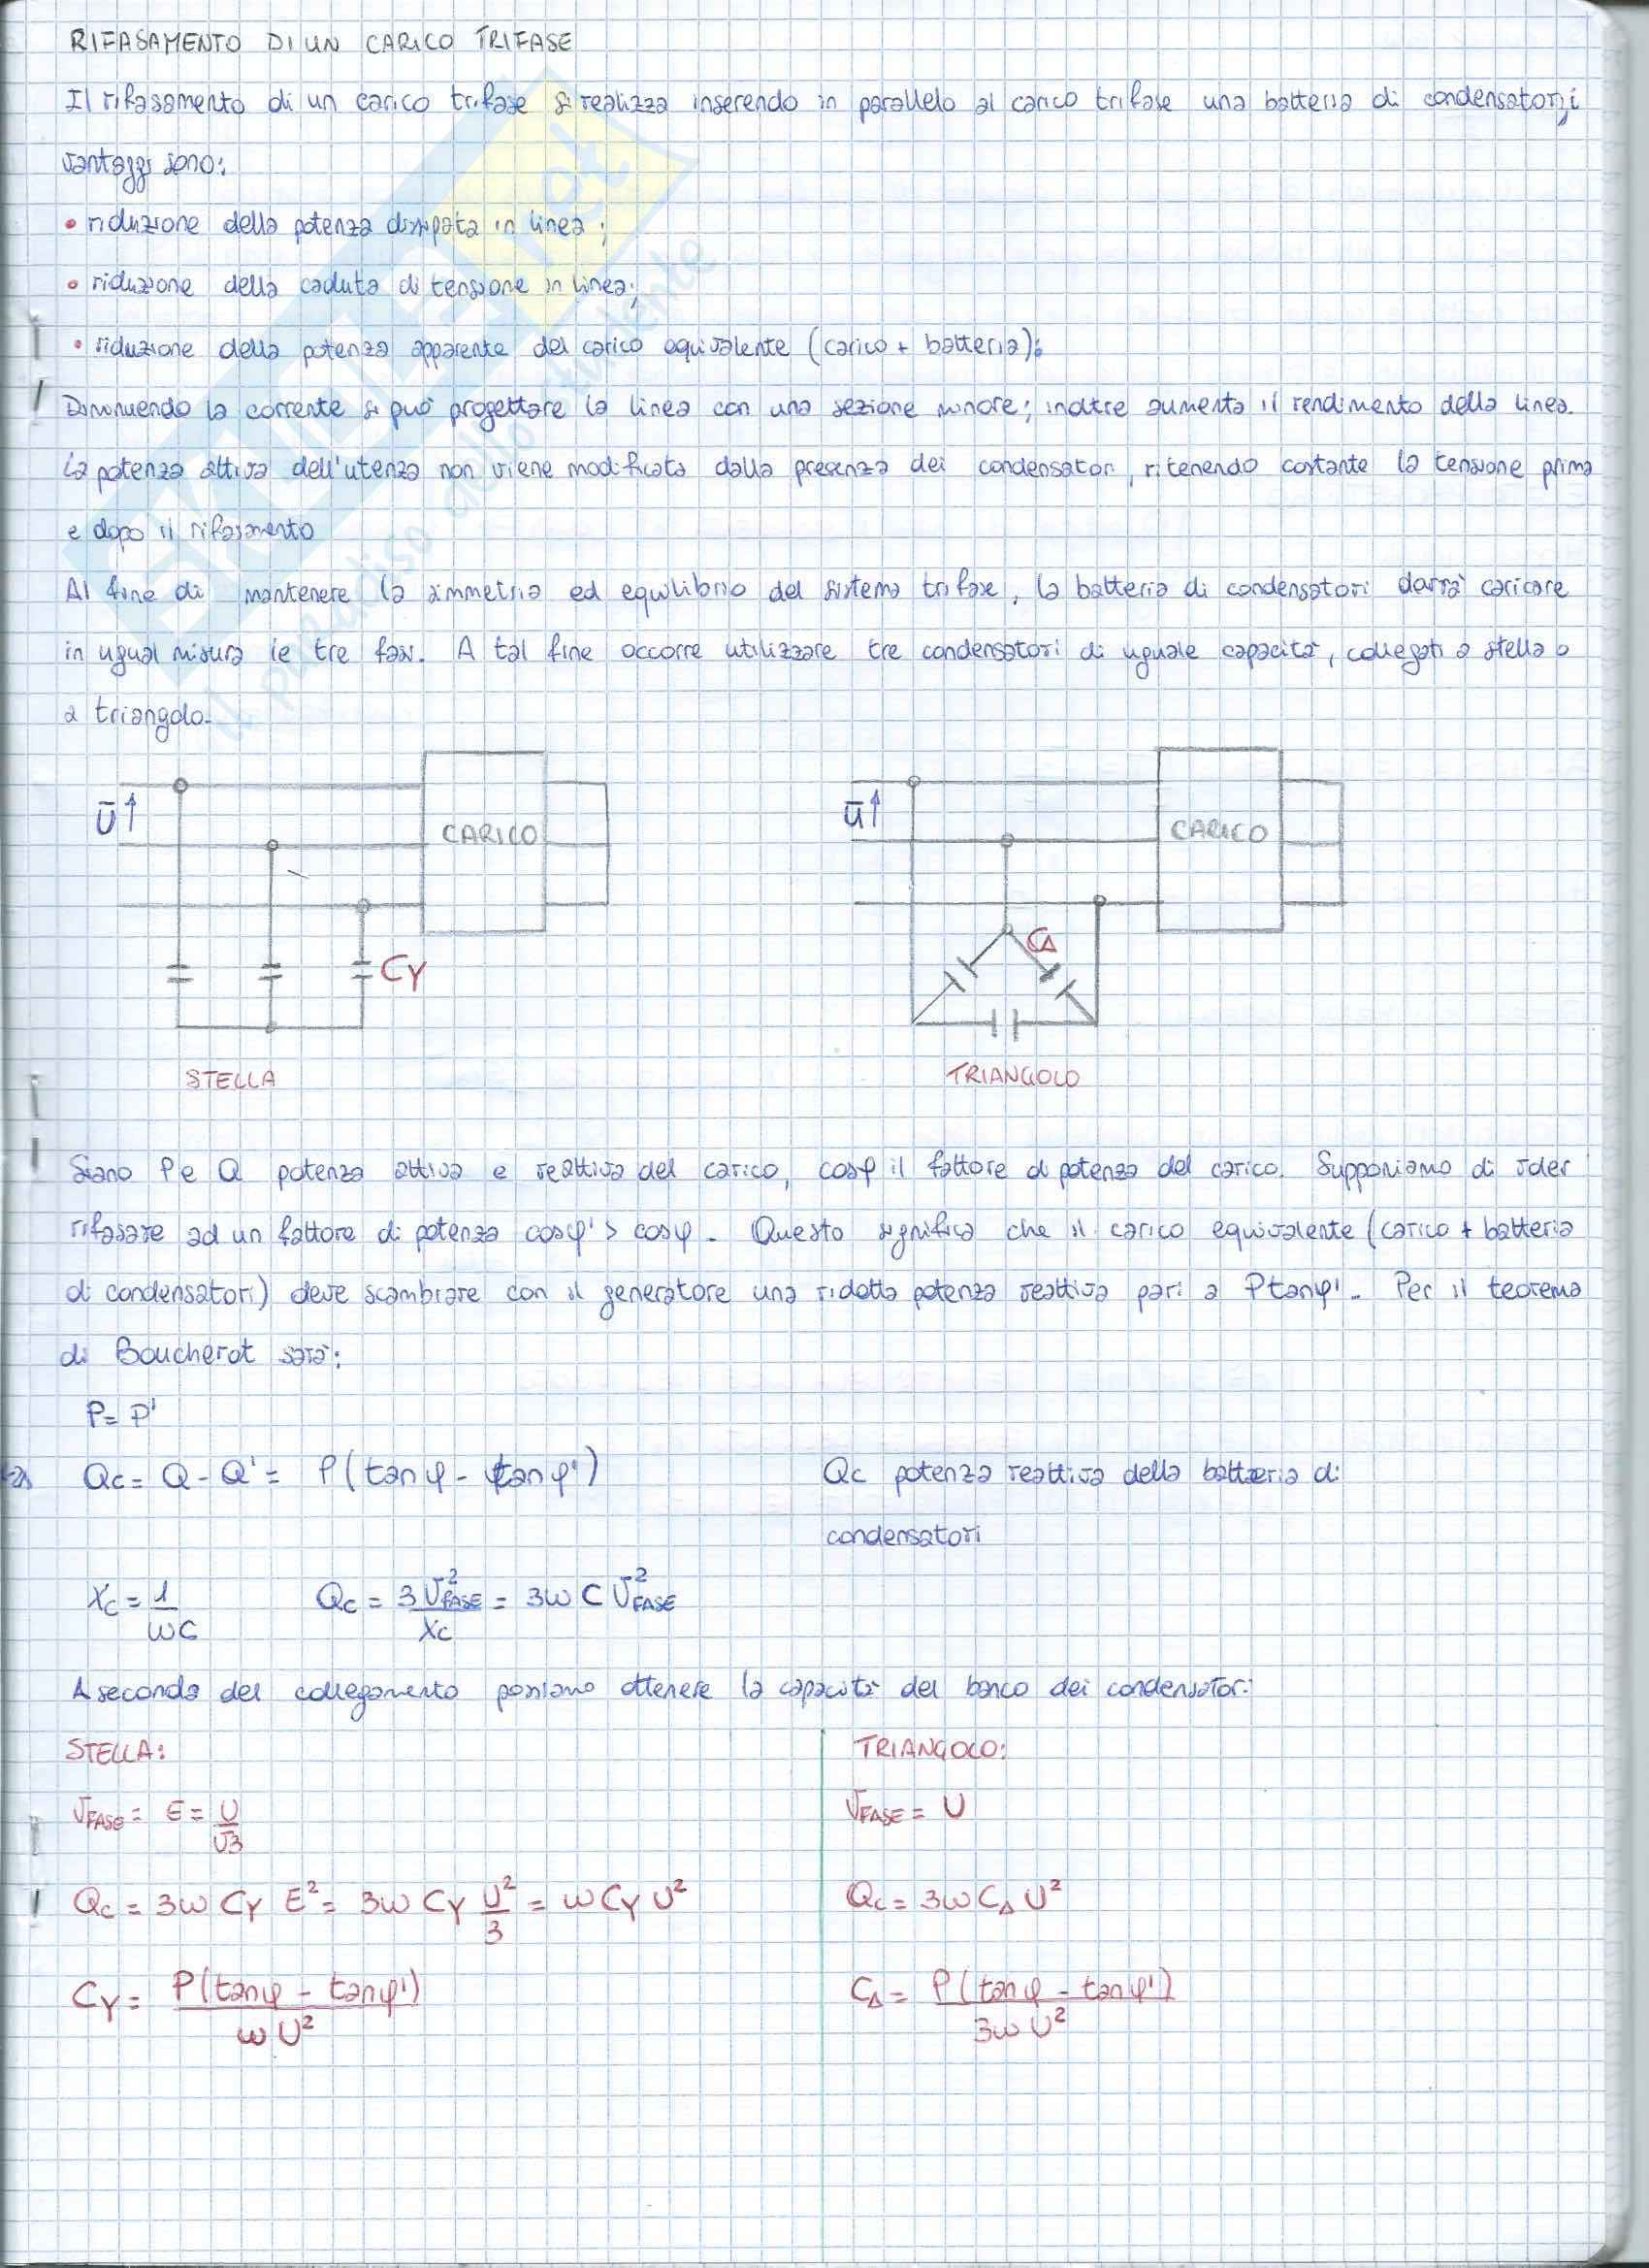 RIFASAMENTO DI UN CARICO TRIFASE
Il rifasamento di un carico trifase si realizza inserendo in parallelo al carico trifase una batteria di condensatori, i
vantaggi sono:
• riduzione della potenza dissipata in linea;
• riduzione della caduta di tensione in linea;
• riduzione della potenza apparente del carico equivalente (carico + batteria);
Diminuendo la corrente si può progettare la linea con una sezione minore; inoltre aumenta il rendimento della linea.
La potenza attiva dell'utenza non viene modificata dalla presenza dei condensatori, ritenendo costante la tensione prima
e dopo il rifasamento
Al fine di mantenere la simmetria ed equilibrio del sistema trifase, la batteria di condensatori dovrà caricare
in ugual misura le tre fasi. A tal fine occorre utilizzare tre condensatori di uguale capacità, collegati a stella o
a triangolo.
Ū↑ CARICO Ū↑ CARICO
CY C∆
STELLA TRIANGOLO
Siano P e Q potenza attiva e reattiva del carico, cosφ il fattore di potenza del carico. Supponiamo di voler
rifasare ad un fattore di potenza cosφ' > cosφ. Questo significa che il carico equivalente (carico + batteria
di condensatori) deve scambiare con il generatore una ridotta potenza reattiva pari a Ptanφ'. Per il teorema
di Boucherot sarà:
P = P'
Qc = Q - Q' = P(tanφ - tanφ') Qc potenza reattiva della batteria di
condensatori
Xc = 1/ωC Qc = 3V²FASE/Xc = 3ωCV²FASE
A seconda del collegamento possiamo ottenere la capacità del banco dei condensatori:
STELLA: TRIANGOLO:
VFASE = E = U/√3 VFASE = U
Qc = 3ωCY E² = 3ωCY U²/3 = ωCY U² Qc = 3ωC∆U²
CY = P(tanφ - tanφ')/ωU² C∆ = P(tanφ - tanφ')/3ωU²
SKUOLA.net
il paradiso dello studente